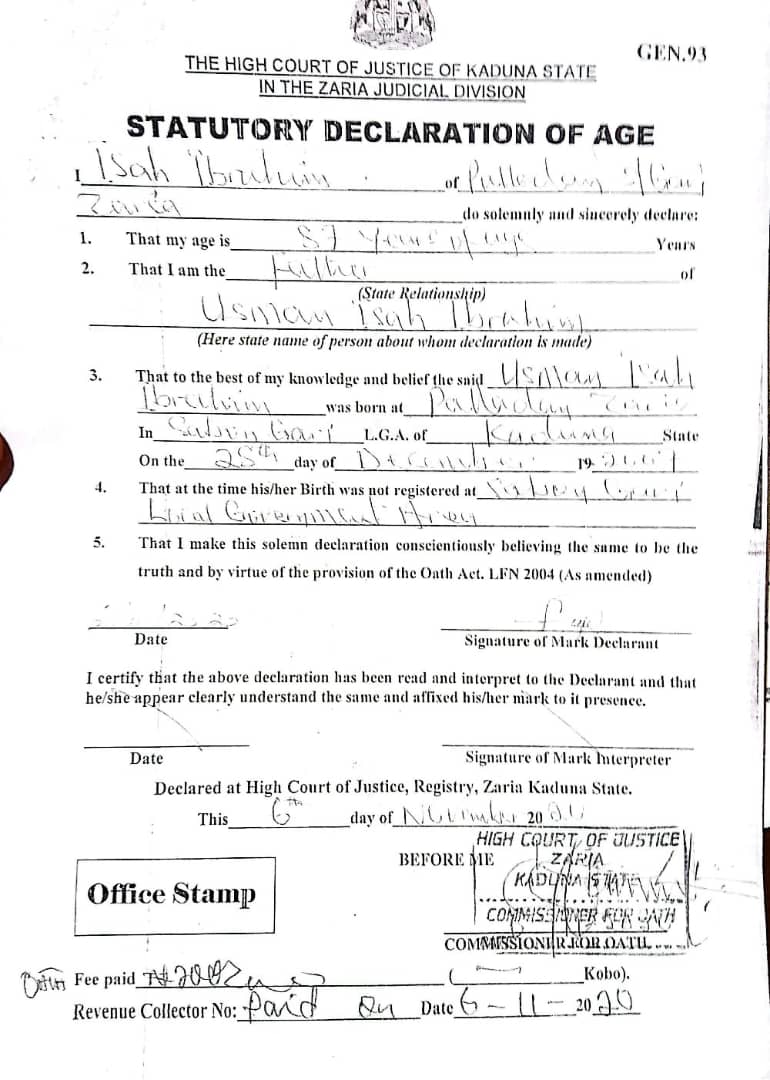 GEN.93
THE HIGH COURT OF JUSTICE OF KADUNA STATE
IN THE ZARIA JUDICIAL DIVISION
STATUTORY DECLARATION OF AGE
I Isah Ibrahim of Palladan
Zaria do solemnly and sincerely declare:
1. That my age is 57 Years of age Years
2. That I am the Father of
(State Relationship)
Usman Isah Ibrahim
(Here state name of person about whom declaration is made)
3. That to the best of my knowledge and belief the said Usman Isah
Ibrahim was born at Palladan Zaria
In Sabon Gari L.G.A. of Kaduna State
On the 25th day of December 19 2001
4. That at the time his/her Birth was not registered at Sabon Gari
Local Government Area
5. That I make this solemn declaration conscientiously believing the same to be the
truth and by virtue of the provision of the Oath Act. LFN 2004 (As amended)
Date Signature of Mark Declarant
I certify that the above declaration has been read and interpret to the Declarant and that
he/she appear clearly understand the same and affixed his/her mark to it presence.
Date Signature of Mark Interpreter
Declared at High Court of Justice, Registry, Zaria Kaduna State.
This 6th day of November 2020
HIGH COURT OF JUSTICE
BEFORE ME ZARIA
KADUNA STATE
Office Stamp
COMMISSIONER FOR OATH
COMMISSIONER FOR OATH
Fee paid ₦200 Kobo).
Revenue Collector No: Paid on Date 6-11-2020